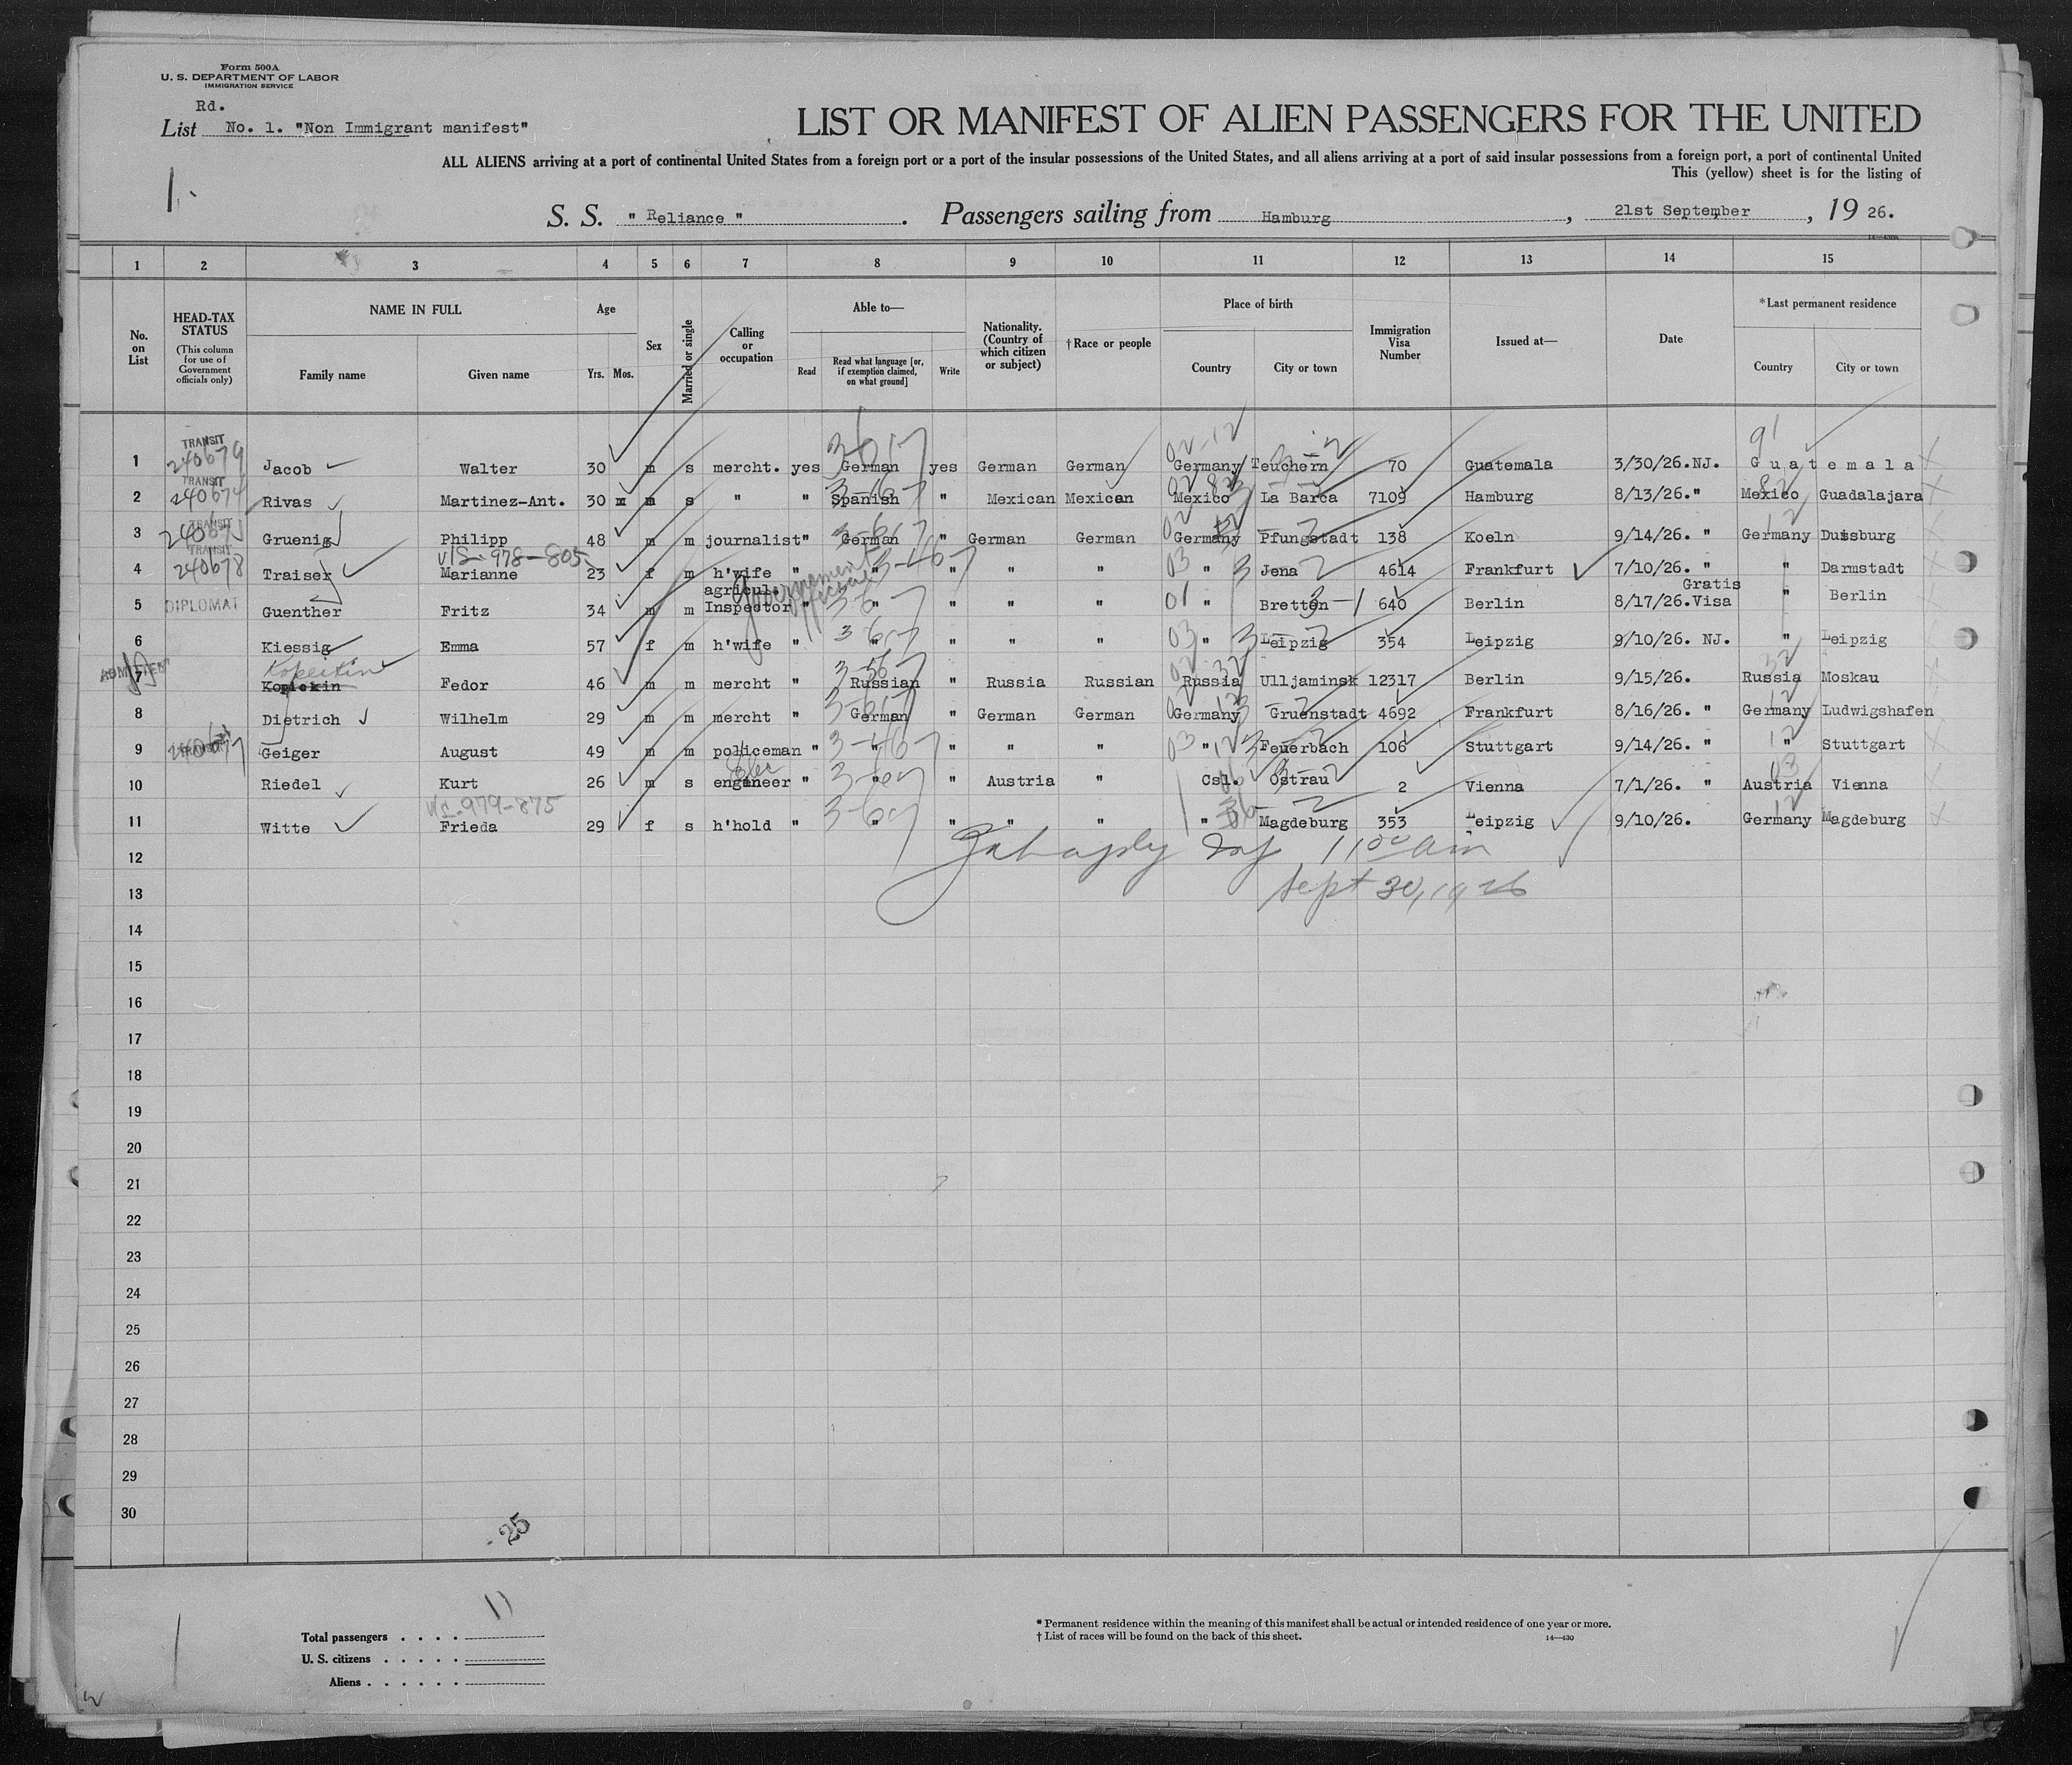 Form 500A
U. S. DEPARTMENT OF LABOR
IMMIGRATION SERVICE
Rd.
List No. 1. "Non Immigrant manifest"
LIST OR MANIFEST OF ALIEN PASSENGERS FOR THE UNITED
ALL ALIENS arriving at a port of continental United States from a foreign port or a port of the insular possessions of the United States, and all aliens arriving at a port of said insular possessions from a foreign port, a port of continental United
This (yellow) sheet is for the listing of
1.
S. S. " Reliance " . Passengers sailing from Hamburg , 21st September , 19 26.
1 2 3 4 5 6 7 8 9 10 11 12 13 14 15
No. on List
HEAD-TAX STATUS (This column for use of Government officials only)
NAME IN FULL Family name Given name
Age Yrs. Mos.
Sex
Married or single
Calling or occupation
Able to— Read Read what language [or, if exemption claimed, on what ground] Write
Nationality. (Country of which citizen or subject)
†Race or people
Place of birth Country City or town
Immigration Visa Number
Issued at—
Date
*Last permanent residence Country City or town
1 TRANSIT 240679 Jacob Walter 30 m s mercht. yes German yes German German Germany Teuchern 70 Guatemala 3/30/26. NJ. Guatemala
2 TRANSIT 240674 Rivas Martinez-Ant. 30 m m s " " Spanish " Mexican Mexican Mexico La Barca 7109 Hamburg 8/13/26. " Mexico Guadalajara
3 TRANSIT 240675 Gruenig Philipp 48 m m journalist " German " German German Germany Pfungstadt 138 Koeln 9/14/26. " Germany Duisburg
vis. 978-805
4 TRANSIT 240678 Traiser Marianne 23 f m h'wife " " " " " " Jena 4614 Frankfurt 7/10/26. " " Darmstadt
Government Official
5 DIPLOMAT Guenther Fritz 34 m m agricul. Inspector " " " " " " Bretten 640 Berlin 8/17/26. Gratis Visa " Berlin
6 Kiessig Emma 57 f m h'wife " " " " " " Leipzig 354 Leipzig 9/10/26. NJ. " Leipzig
Kopeikin
7 ADMITTED Kopickin Fedor 46 m m mercht " Russian " Russia Russian Russia Ulljaminsk 12317 Berlin 9/15/26. Russia Moskau
8 Dietrich Wilhelm 29 m m mercht " German " German German Germany Gruenstadt 4692 Frankfurt 8/16/26. " Germany Ludwigshafen
9 TRANSIT 240677 Geiger August 49 m m policeman " " " " " " Feuerbach 106 Stuttgart 9/14/26. " " Stuttgart
10 Riedel Kurt 26 m s Elec engineer " " " Austria " Csl. Ostrau 2 Vienna 7/1/26. " Austria Vienna
979-875
11 Witte Frieda 29 f s h'hold " " " " " " Magdeburg 353 Leipzig 9/10/26. Germany Magdeburg
12 11 00 am
13 Sept 30, 1926
14
15
16
17
18
19
20
21
22
23
24
25
26
27
28
29
30
25
11
Total passengers
U. S. citizens
Aliens
* Permanent residence within the meaning of this manifest shall be actual or intended residence of one year or more.
† List of races will be found on the back of this sheet.
14—430